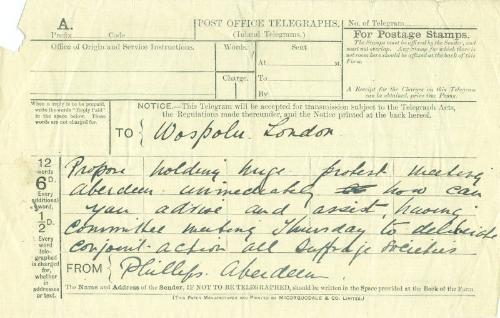 A.
Prefix Code
POST OFFICE TELEGRAPHS.
(Inland Telegrams.)
No. of Telegram
For Postage Stamps.
The Stamps must be affixed by the Sender, and
must not overlap. Any Stamp for which there is
not room here should be affixed at the back of this
Form.
A Receipt for the Charges on this Telegram
can be obtained, price One Penny.
Office of Origin and Service Instructions.
Words.
Sent
At M.
To
By
Charge.
When a reply is to be prepaid,
write the words "Reply Paid"
in the space below. These
words are not charged for.
NOTICE.—This Telegram will be accepted for transmission subject to the Telegraph Acts,
the Regulations made thereunder, and the Notice printed at the back hereof.
TO Wospolu. London
12
words
6D.
Every
additional
word,
½D.
Every
word
telegraphed
is charged
for,
whether
in
addresses
or text.
Propose holding huge protest meeting
Aberdeen immediately how can
you advise and assist, having
committee meeting Thursday to deliberate
conjoint action all Suffrage Societies
FROM Phillips. Aberdeen
The Name and Address of the Sender, IF NOT TO BE TELEGRAPHED, should be written in the Space provided at the Back of the Form.
(This Paper Manufactured and Printed by McCorquodale & Co. Limited.)